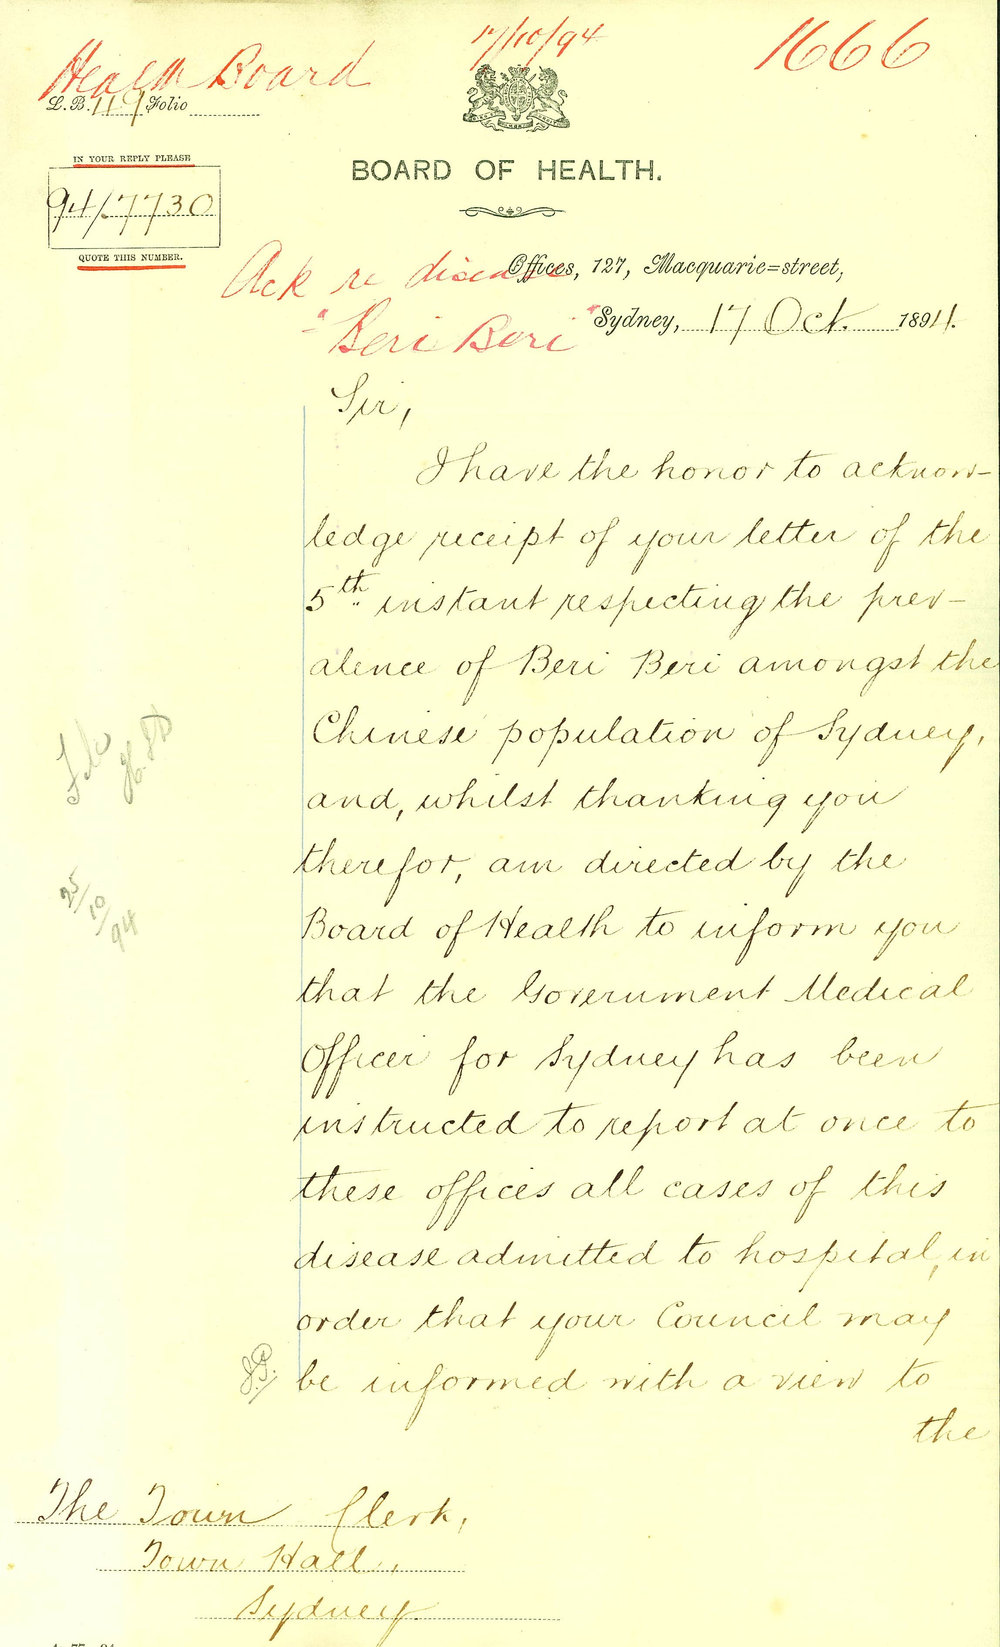 17/10/94
1666
Health Board
L.B. 119 Folio
IN YOUR REPLY PLEASE
94/7730
QUOTE THIS NUMBER.
BOARD OF HEALTH.
Ack re disease
"Beri Beri"
Offices, 127, Macquarie=street,
Sydney, 17 Oct. 1894.
Sir,
I have the honor to acknow-
ledge receipt of your letter of the
5th instant respecting the prev-
alence of Beri Beri amongst the
Chinese population of Sydney,
and, whilst thanking you
therefor, am directed by the
Board of Health to inform you
that the Government Medical
Officer for Sydney has been
instructed to report at once to
these offices all cases of this
disease admitted to hospital, in
order that your Council may
be informed with a view to
the
File
25/10/94
The Town Clerk,
Town Hall,
Sydney